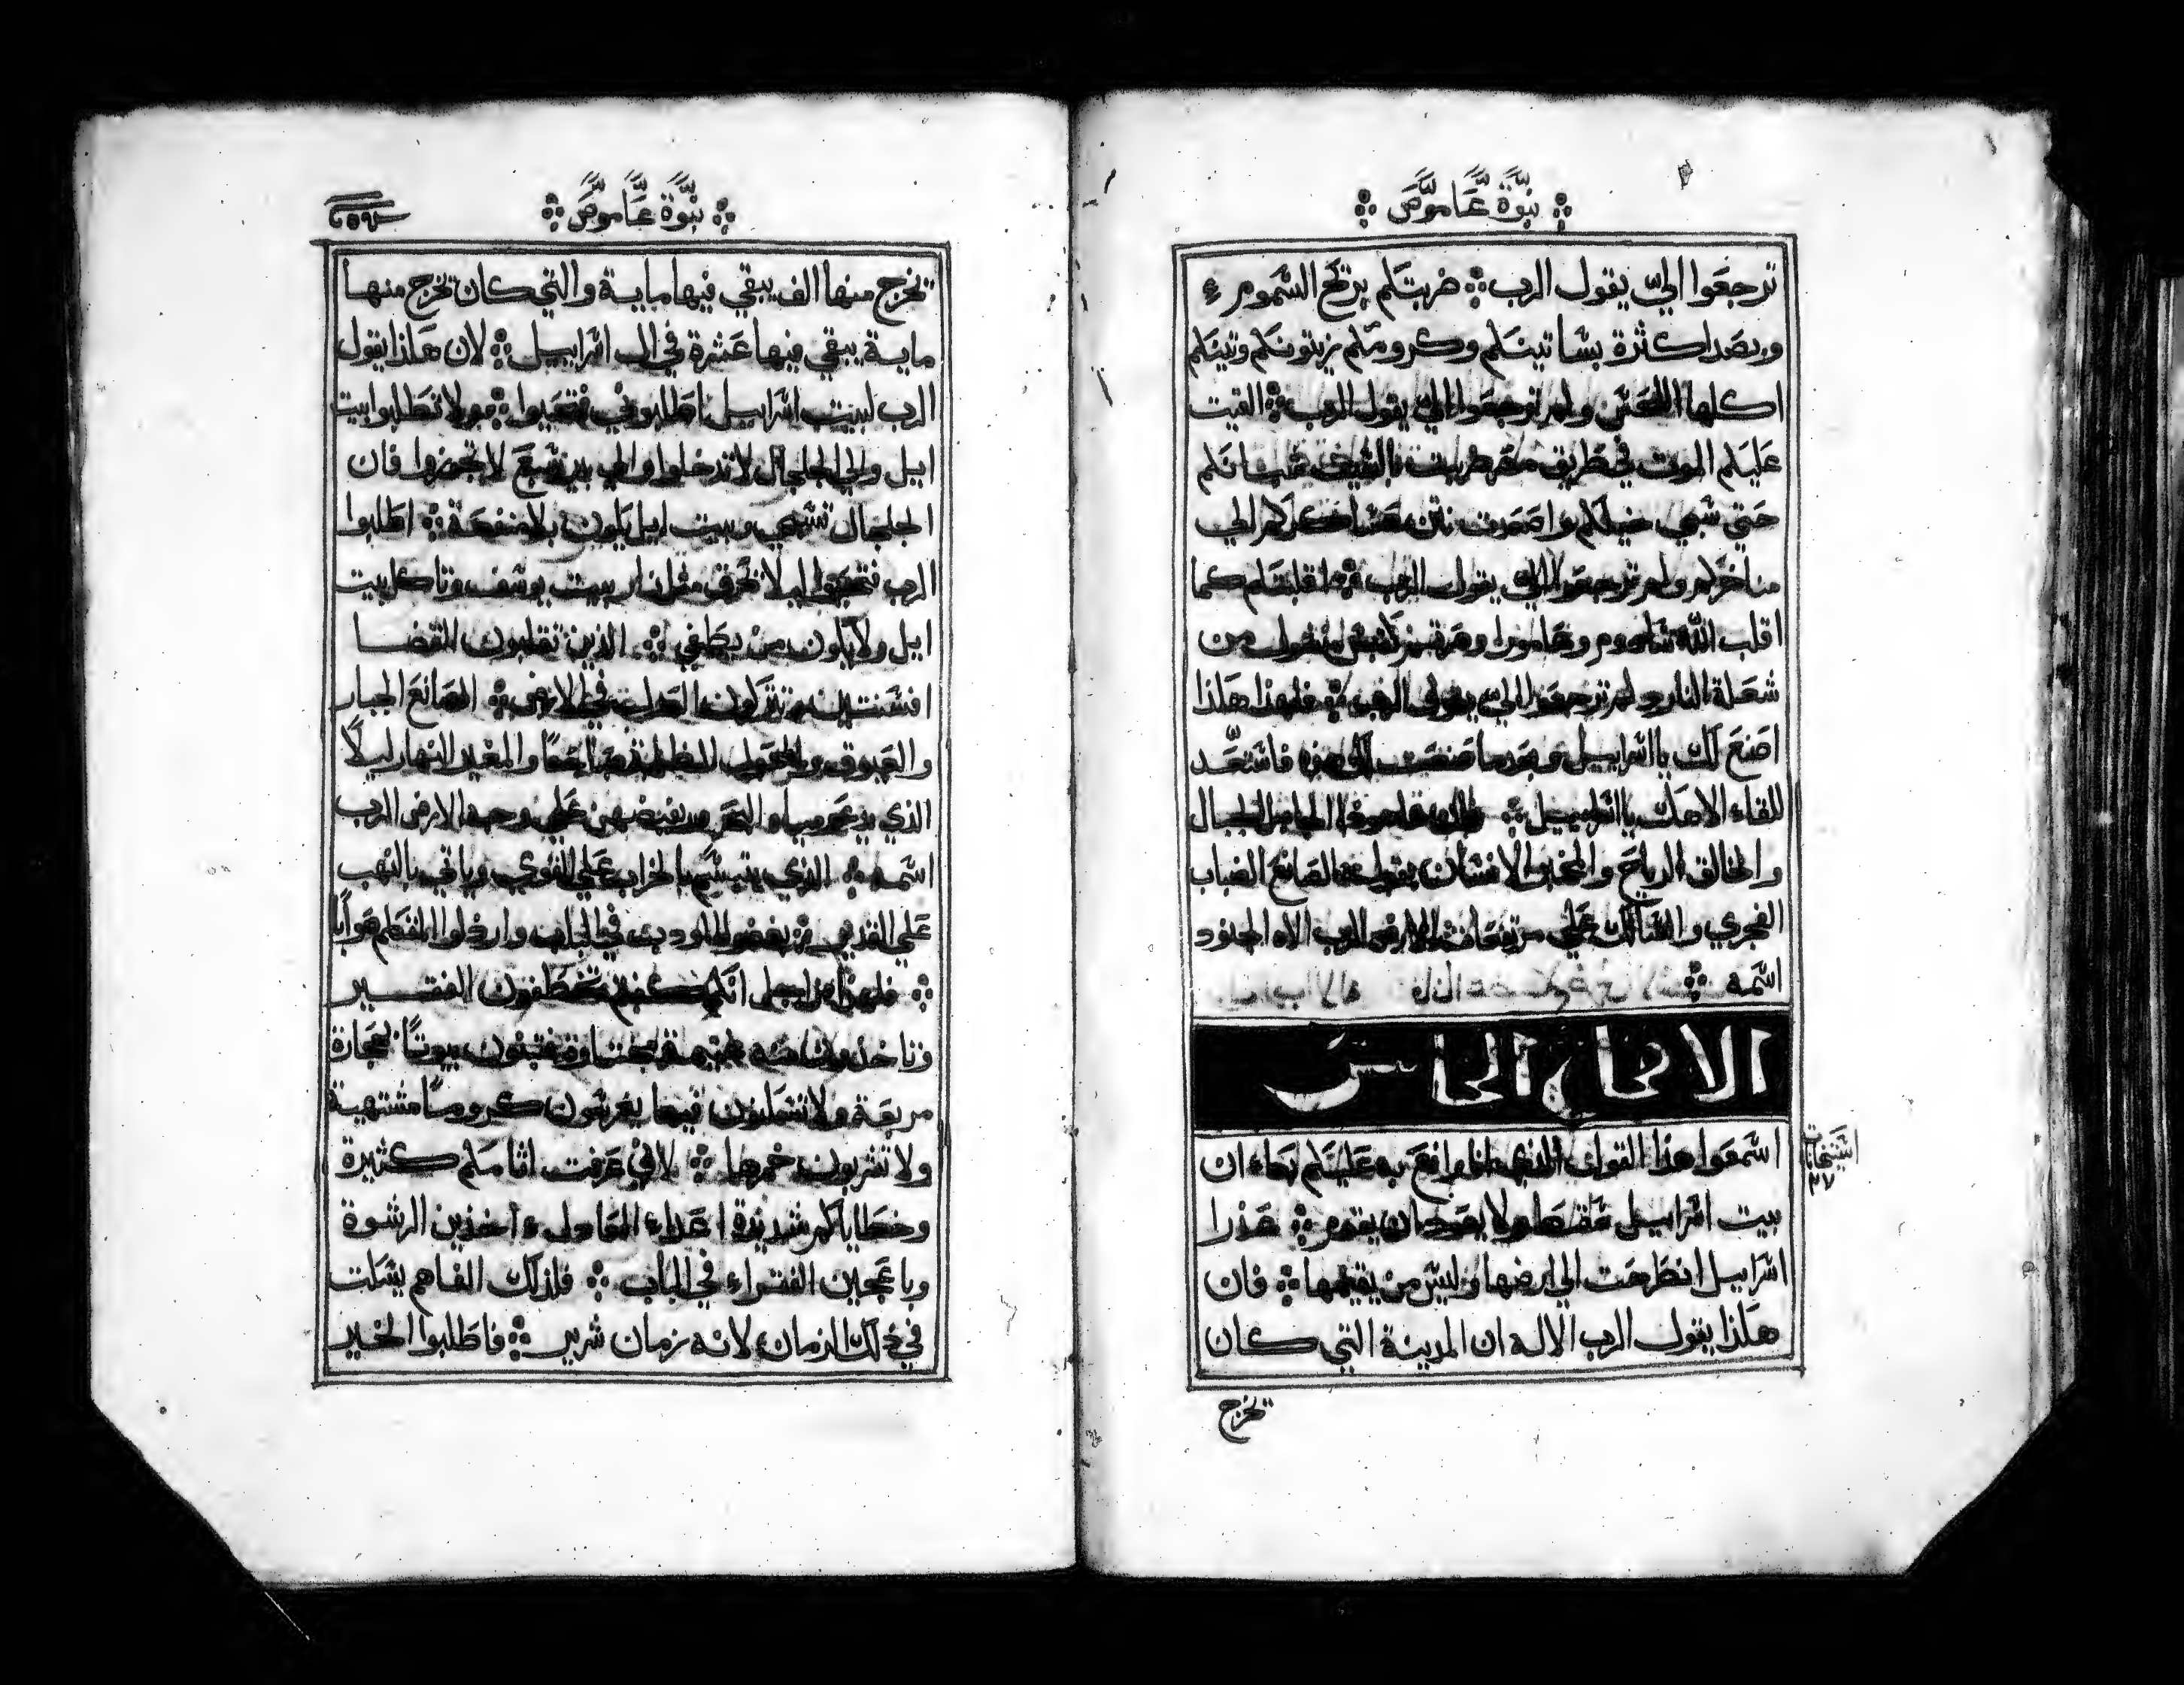 نبوة عاموص
ترجعوا الي يقول الرب ضربتكم بريح السموم
وبصدا كثرة بساتينكم وكرومكم زيتونكم وتينكم
اكلها ولم ترجعوا الي يقول الرب القيت
عليكم الموت في طريق مصر ضربت بالسيف شبانكم
حتي سبي خيلكم واصعدت نتن عساكركم الي
مناخركم ولم ترجعوا الي يقول الرب اقلبتكم كما
اقلب الله سادوم وعامورا وصرتم من
شعلة النار ولم ترجعوا الي يقول الرب فلهذا هكذا
اصنع لك يا اسراييل وبعد ما صنعت لك هذه فاستعد
للقاء الاهك يا اسراييل الجبال
والخالق الرياح والمخبر الانسان الصانع الضباب
الفجري والسالك علي مرتفعات الارض الرب الاه الجنود
اسمه
الاصحاح الخامس
اسمعوا هذا القول الذي انا رافع به عليكم بكاء ان
بيت اسراييل سقط ولا يعود ان يقوم عذرا
اسراييل انطرحت الي ارضها وليس من يقيمها فان
هكذا يقول الرب الاله ان المدينة التي كان
تخرج
نبوة عاموص
تخرج منها الف يبقي فيها ماية والتي كان تخرج منها
ماية يبقي فيها عشرة في ال اسراييل لان هكذا يقول
الرب لبيت اسراييل اطلبوني فتحيوا ولا تطلبوا بيت
ايل والي الجلجال لا تدخلوا والي بير سبع لا تحضروا فان
الجلجال تسبي وبيت ايل يكون بلا منفعة اطلبوا
الرب لا تحرق مثل نار بيت يوسف وتاكل بيت
ايل ولا يكون من يطفي الذين تقلبون القضا
افسنتين وتتركون العدل في الارض الصانع الجبار
والعيوق والمحول الظلمة صباحا والمغير النهار ليلا
الذي يدعو مياه البحر ويفيضهن علي وجه الارض الرب
اسمه الذي يتبسم بالخراب علي القوي وياتي بالنهب
علي القدير بغضوا في الباب
فلهذا من اجل انكم كنتم تخطفون الفقير
وتاخذون منه فتبنون بيوتا بحجارة
مربعة ولا تسكنون فيها تغرسون كروما مشتهية
ولا تشربون خمرها لاني عرفت اثامكم كثيرة
وخطاياكم شديدة اعداء العادل اخذين الرشوة
الفقراء في الباب فلذلك الفاهم يسكت
في ذلك الزمان لانه زمان شرير فاطلبوا الخير